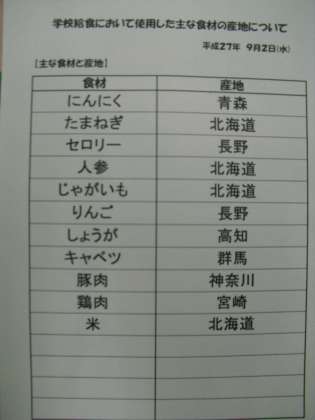 学校給食において使用した主な食材の産地について
平成27年 9月2日(水)
[主な食材と産地]
食材 産地
にんにく 青森
たまねぎ 北海道
セロリー 長野
人参 北海道
じゃがいも 北海道
りんご 長野
しょうが 高知
キャベツ 群馬
豚肉 神奈川
鶏肉 宮崎
米 北海道